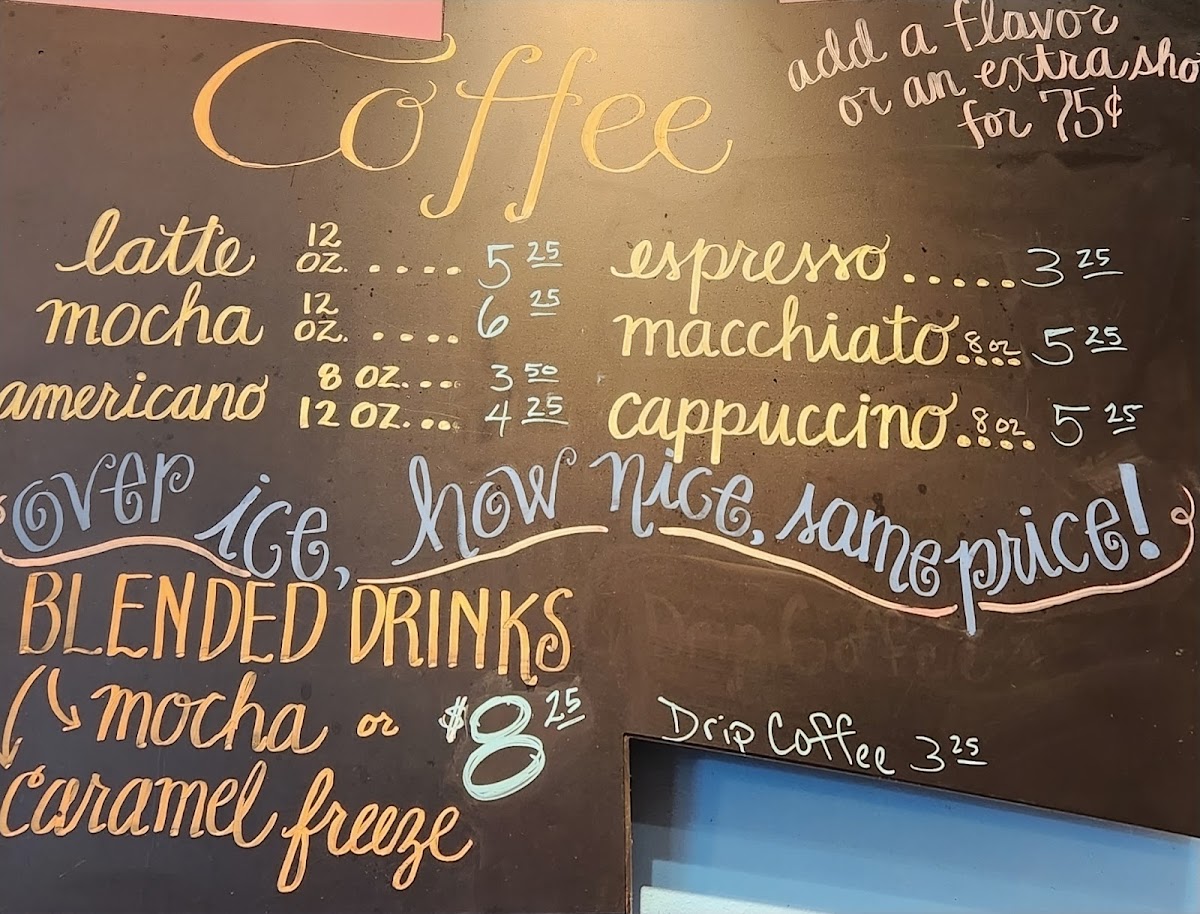 Coffee
add a flavor
or an extra sho
for 75¢
latte 12 oz. .... 5 25
mocha 12 oz. .... 6 25
americano 8 oz.... 3 50
12 oz.... 4 25
espresso ...... 3 25
macchiato 8 oz .... 5 25
cappuccino 8 oz .... 5 25
over ice, how nice, same price!
BLENDED DRINKS
mocha or $8 25
caramel freeze
Drip Coffee 3 25